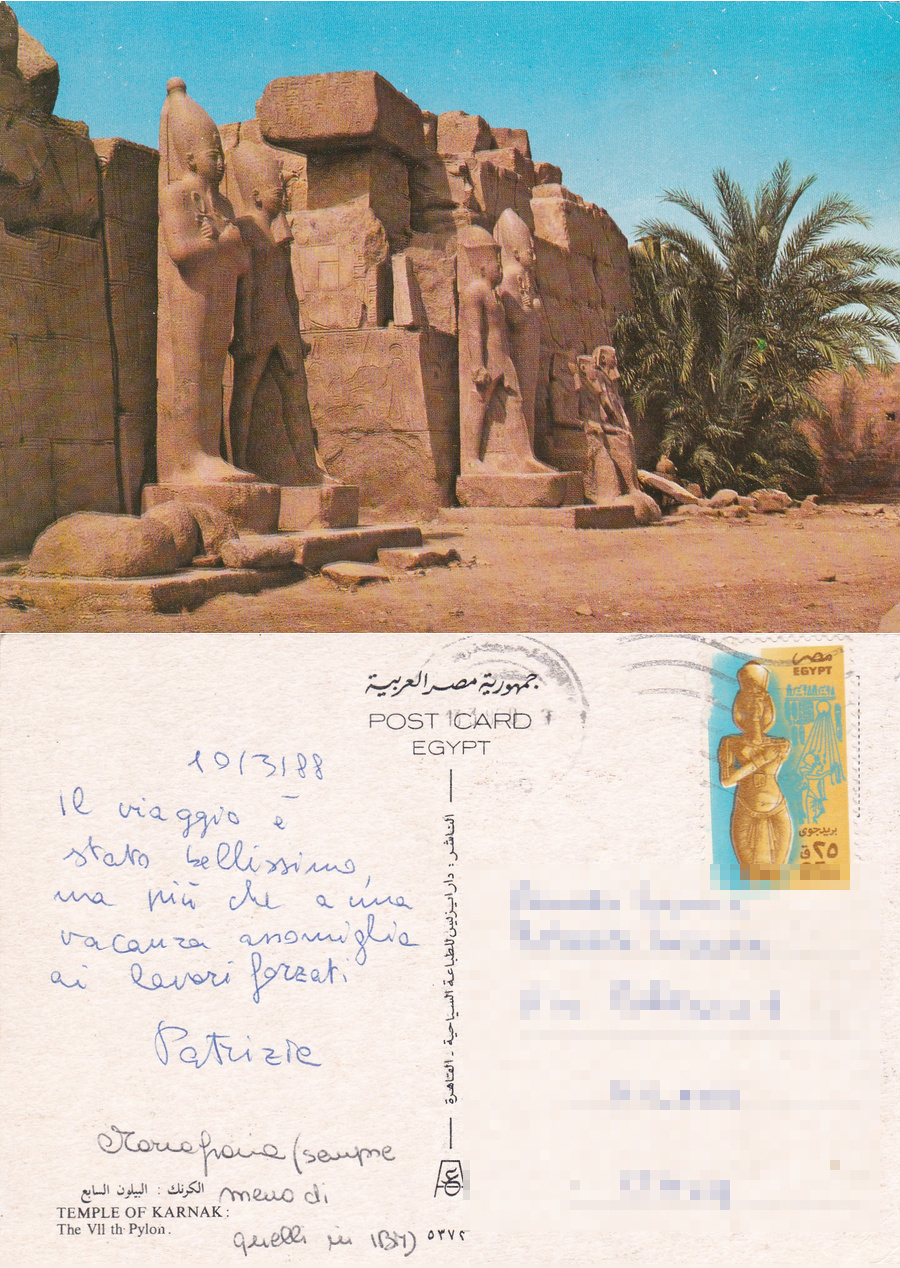 جمهورية مصر العربية
POST CARD
EGYPT
مصر
EGYPT
بريد جوى
٢٥ ق
10/3/88
Il viaggio è
stato bellissimo,
ma più che a una
vacanza assomiglia
ai lavori forzati
Patrizia
Mariagrazia (sempre
meno di
quelli in IBM)
الناشر : دار ايزيس للطباعة السياحية - القاهرة
الكرنك : البيلون السابع
TEMPLE OF KARNAK :
The VII th Pylon.
٥٣٧٢